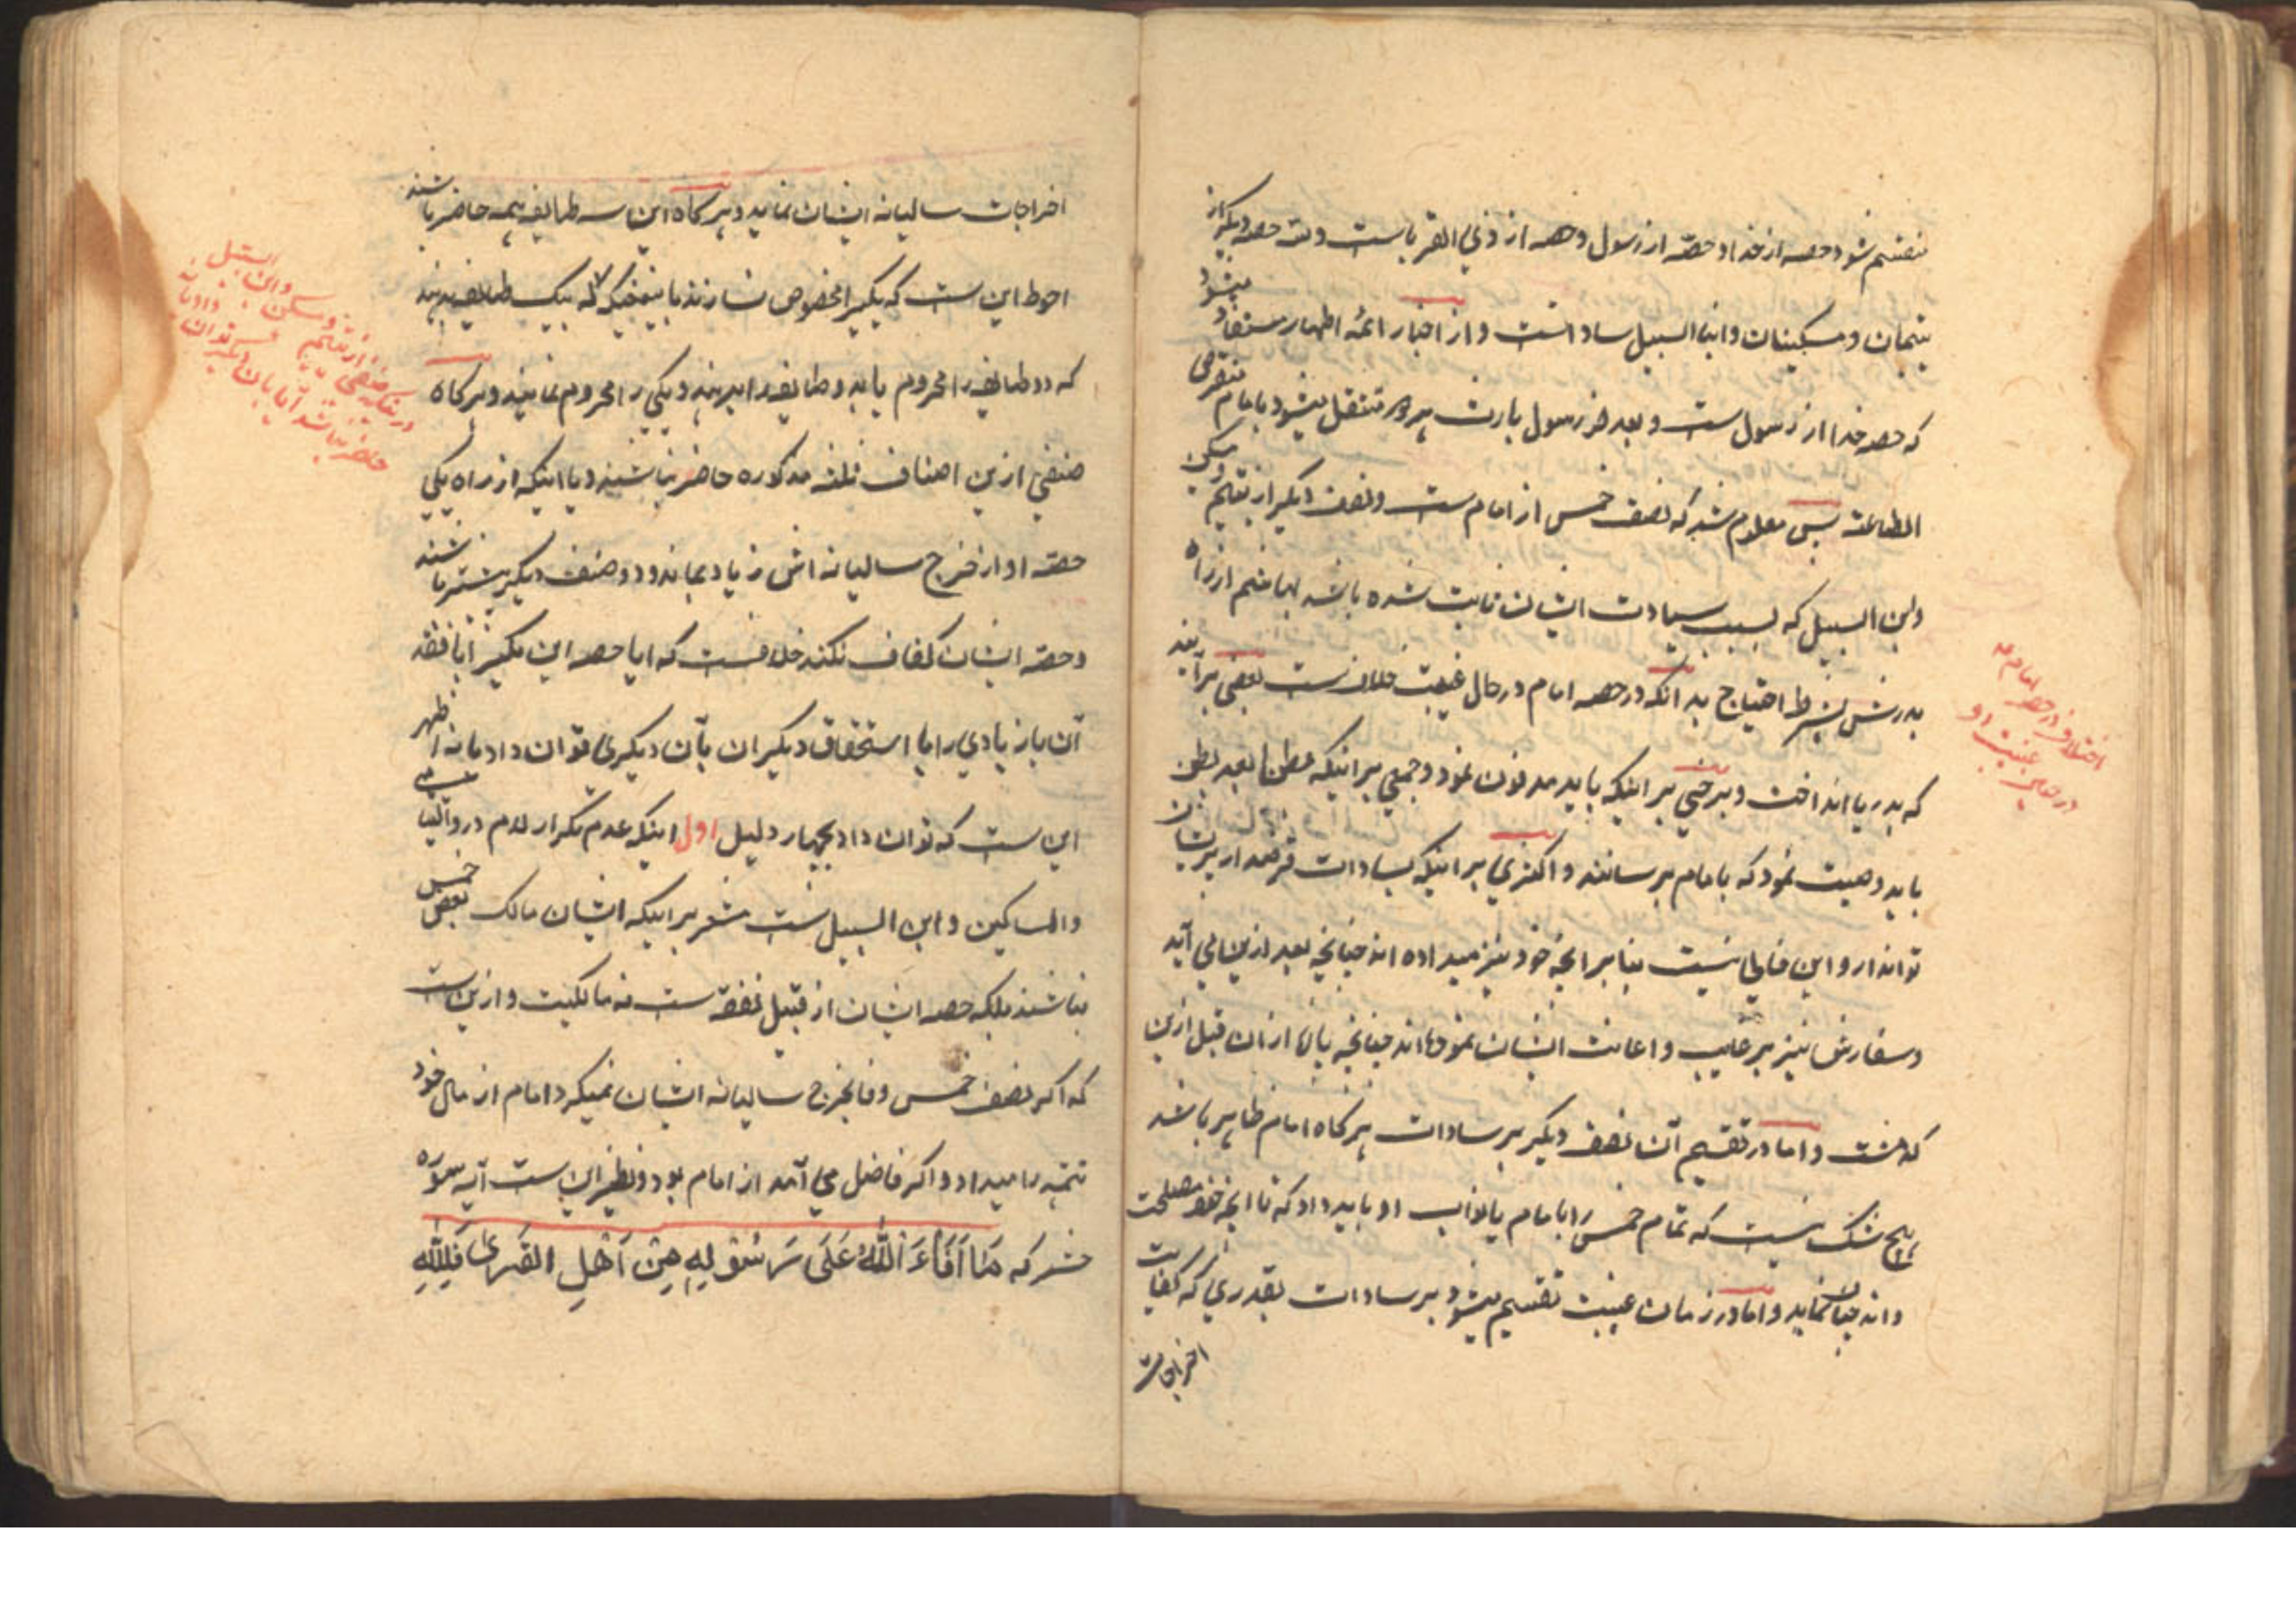 منقسم شود حصه از خدا و حصّه از رسول و حصه از ذی القرباست و سه حصه دیگر از
یتیمان و مسکینان و ابنا السبیل ساداتست و از اخبار ائمه اطهار مستفاد میشود
که حصه خدا از رسول ست و بعد از رسول بارث هر دو منتقل میشود بامام مفترض
الطاعته پس معلوم شد که نصف خمس از امام ست و نصف دیگر از یتیم و مسکین
و ابن السبیل که بسبب سیادت ایشان ثابت شده باشد بهاشم از راه
پدرش بشرط احتیاج بدانکه در حصه امام در حال غیبت خلافست بعضی برآنند
که بدریا انداخت و برخی بر اینکه باید مدفون نمود و جمعی بر اینکه بطن بعد بطن
باید وصیت نمود که بامام برسانند و اکثری بر اینکه بسادات قرضدار پریشان
توان داد و این خالی نیست بنابر انچه خود نیز میداده اند چنانچه بعد ازین می آید
و سفارش نیز بر و اعانت ایشان نموده اند چنانچه پاره از ان قبل ازین
گذشت و اما در تقسیم آن نصف دیگر بر سادات هر گاه امام ظاهر باشد
هیچ شک نیست که تمام خمس را بامام یا نواب او باید داد که تا انچه خود مصلحت
داند چنان نماید و اما در زمان غیبت تقسیم میشود بر سادات بقدری که کفایت
اخراجات
اختلاف در حصه امام
در حین غیبت او
اخراجات سالیانه ایشان نماید و هر گاه این سه طایفه همه حاضر باشند
احوط این ست که یکیرا مخصوص نسازند باینمعنی که بیک طایفه بدهند
که دو طایفه را محروم یا بدو طایفه را بدهند و یکی را محروم نمایند و هر گاه
صنفی ازین اصناف ثلثه مذکوره حاضر نباشند و یا اینکه از راه یکی
حصّه او از خرج سالیانه اش زیاد بماند و دو صنف دیگر بیشتر باشند
و حصّه ایشان کفاف نکند خلافست که ایا حصه این یکیرا با فقد
آن یا زیادی را با استحقاق دیگران بآن دیگری توان داد یا نه اظهر
این ست که توان داد بچهار دلیل اول اینکه عدم تکرار لام در والیتامی
والمساکین و ابن السبیل ست مشعر بر اینکه ایشان مالک بعض خمس
نباشند بلکه حصه ایشان از قبیل نفقه ست نه مالکیت و ازین ست
که اگر نصف خمس وفا بخرج سالیانه ایشان نمیکرد امام از مال خود
تتمه را میداد و اگر فاضل می آمد از امام بود و نظیر این ست آیه سوره
حشر که مَا اَفَاءَ اللّٰهُ عَلَی رَسُوْلِهِ مِنْ اَهْلِ القُرٰی فَلِلّٰهِ
در بیان اینکه صنفی از یتیم و مسکین و ابن السبیل
حاضر نباشد آیا بآن دیگر توان داد یا نه